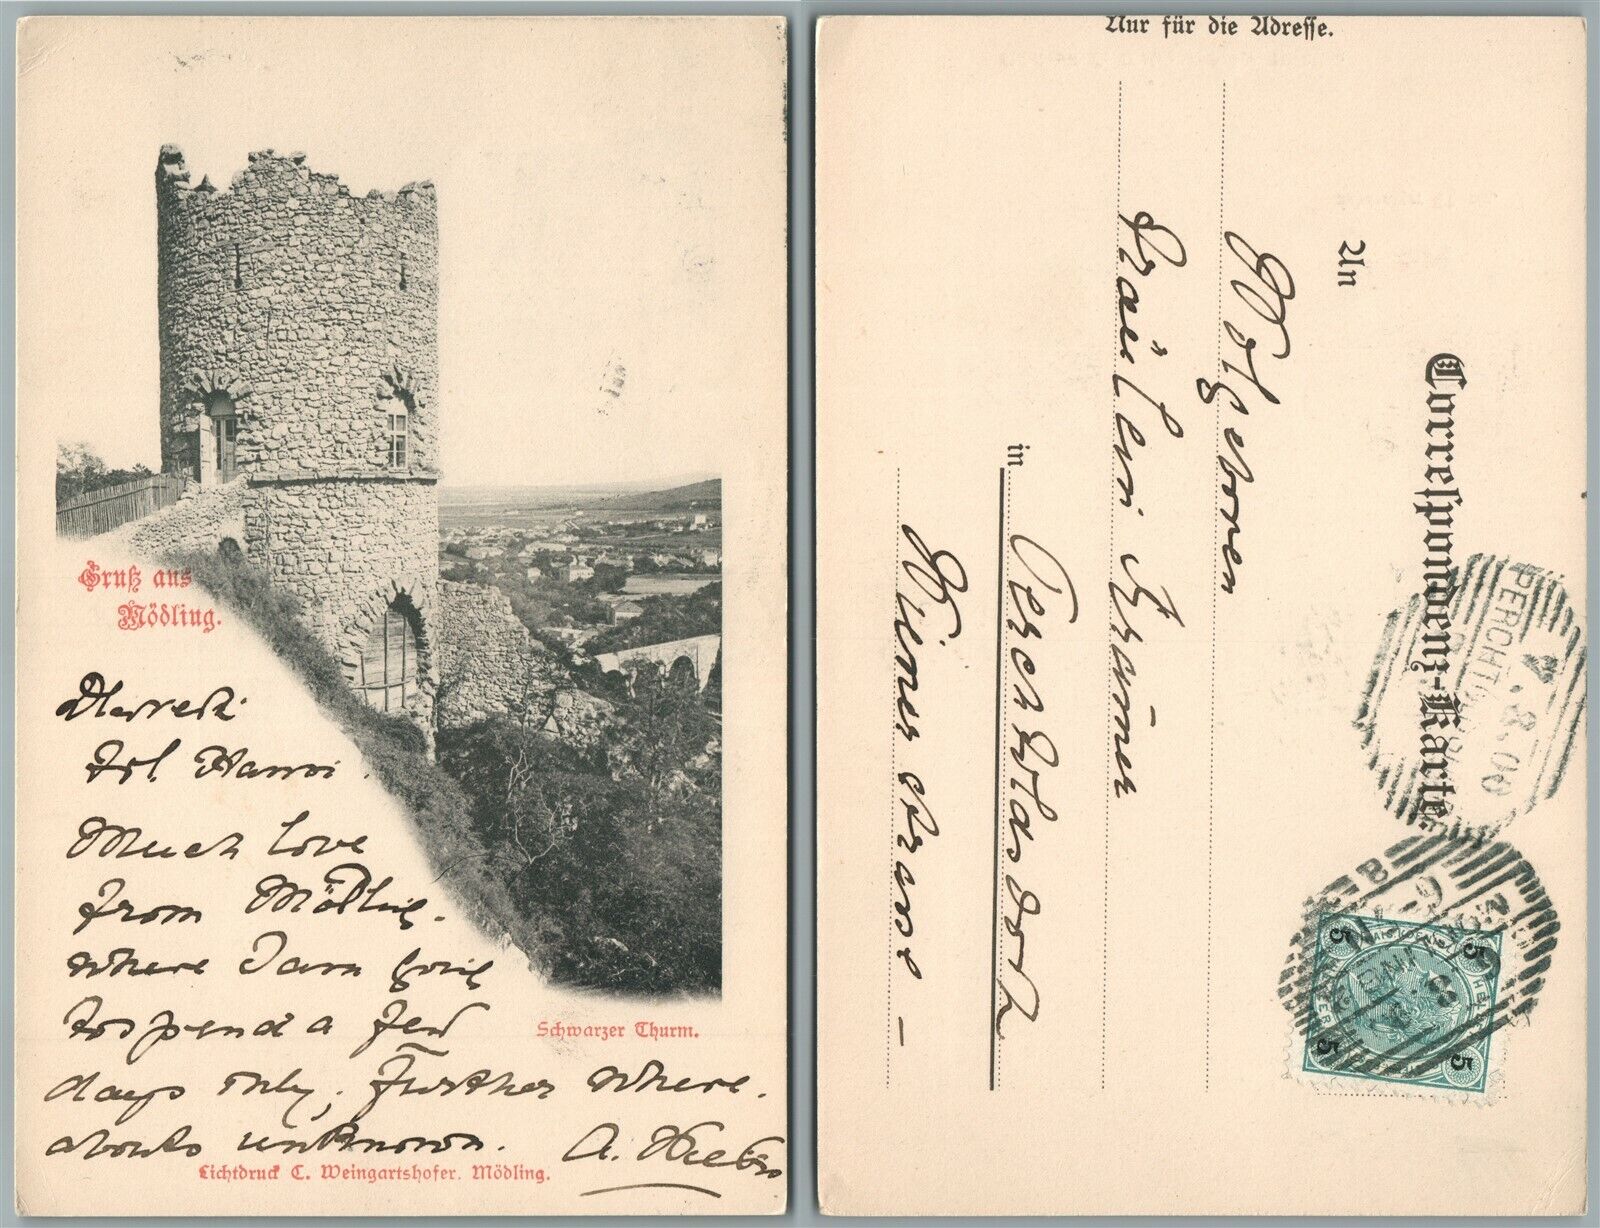 Gruß aus
Mödling.
Frl. Hansi.
Much love
from Mödling.
where I am going
to spend a few
days only; Further where
abouts unknown. A.
Schwarzer Thurm.
Lichtdruck C. Weingartshofer. Mödling.
Nur für die Adresse.
Correspondenz-Karte.
An
Wohlgeboren
Fräulein
in Perchtoldsdorf
Wienerstrasse -
PERCHTOLDSDORF
7.8.00
5 5
5 5
HELLER